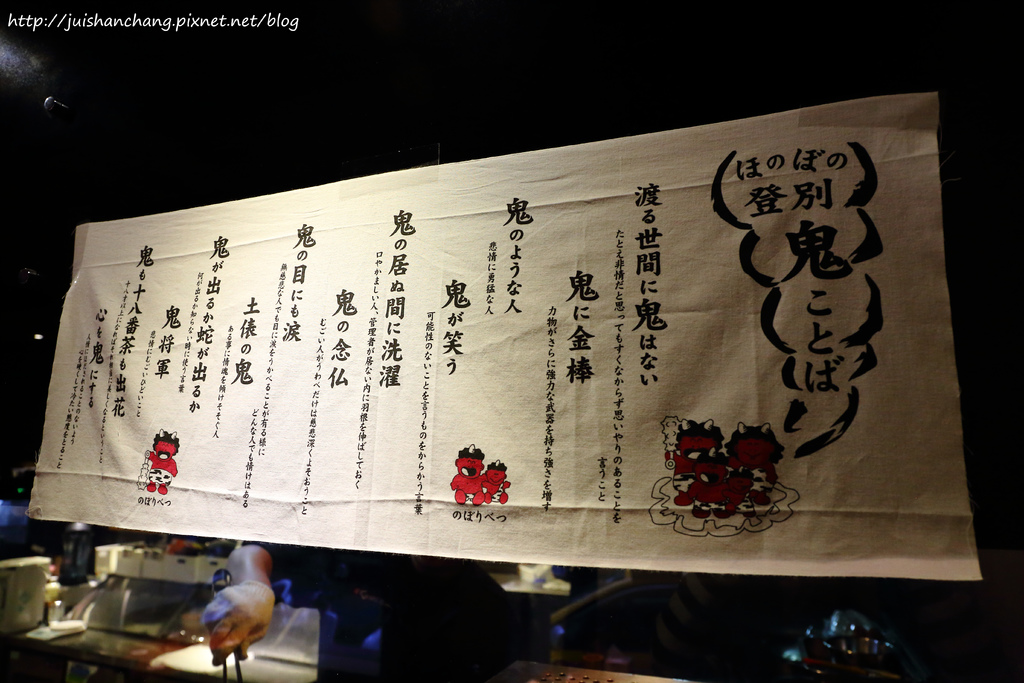 http://juishanchang.pixnet.net/blog
ほのぼの
登別
鬼ことば
渡る世間に鬼はない
たとえ非情だと思ってもすくなからず思いやりのあることを
言うこと
鬼に金棒
力物がさらに強力な武器を持ち強さを増す
鬼のような人
悲情に勇猛な人
鬼が笑う
可能性のないことを言うものをからかう言葉
鬼の居ぬ間に洗濯
口やかましい人、管理者が居ない内に羽根を伸ばしておく
鬼の念仏
むごい人がうわべだけは慈悲深くよそおうこと
鬼の目にも涙
無慈悲な人でも目に涙をうかべることが有る様に
どんな人でも情けはある
土俵の鬼
ある事に情魂を傾けそそぐ人
鬼が出るか蛇が出るか
何が出るか知らない時に使う言葉
鬼将軍
悲情にどごいひどいこと
鬼も十八番茶も出花
心を鬼にする
のぼりべつ
のぼりべつ